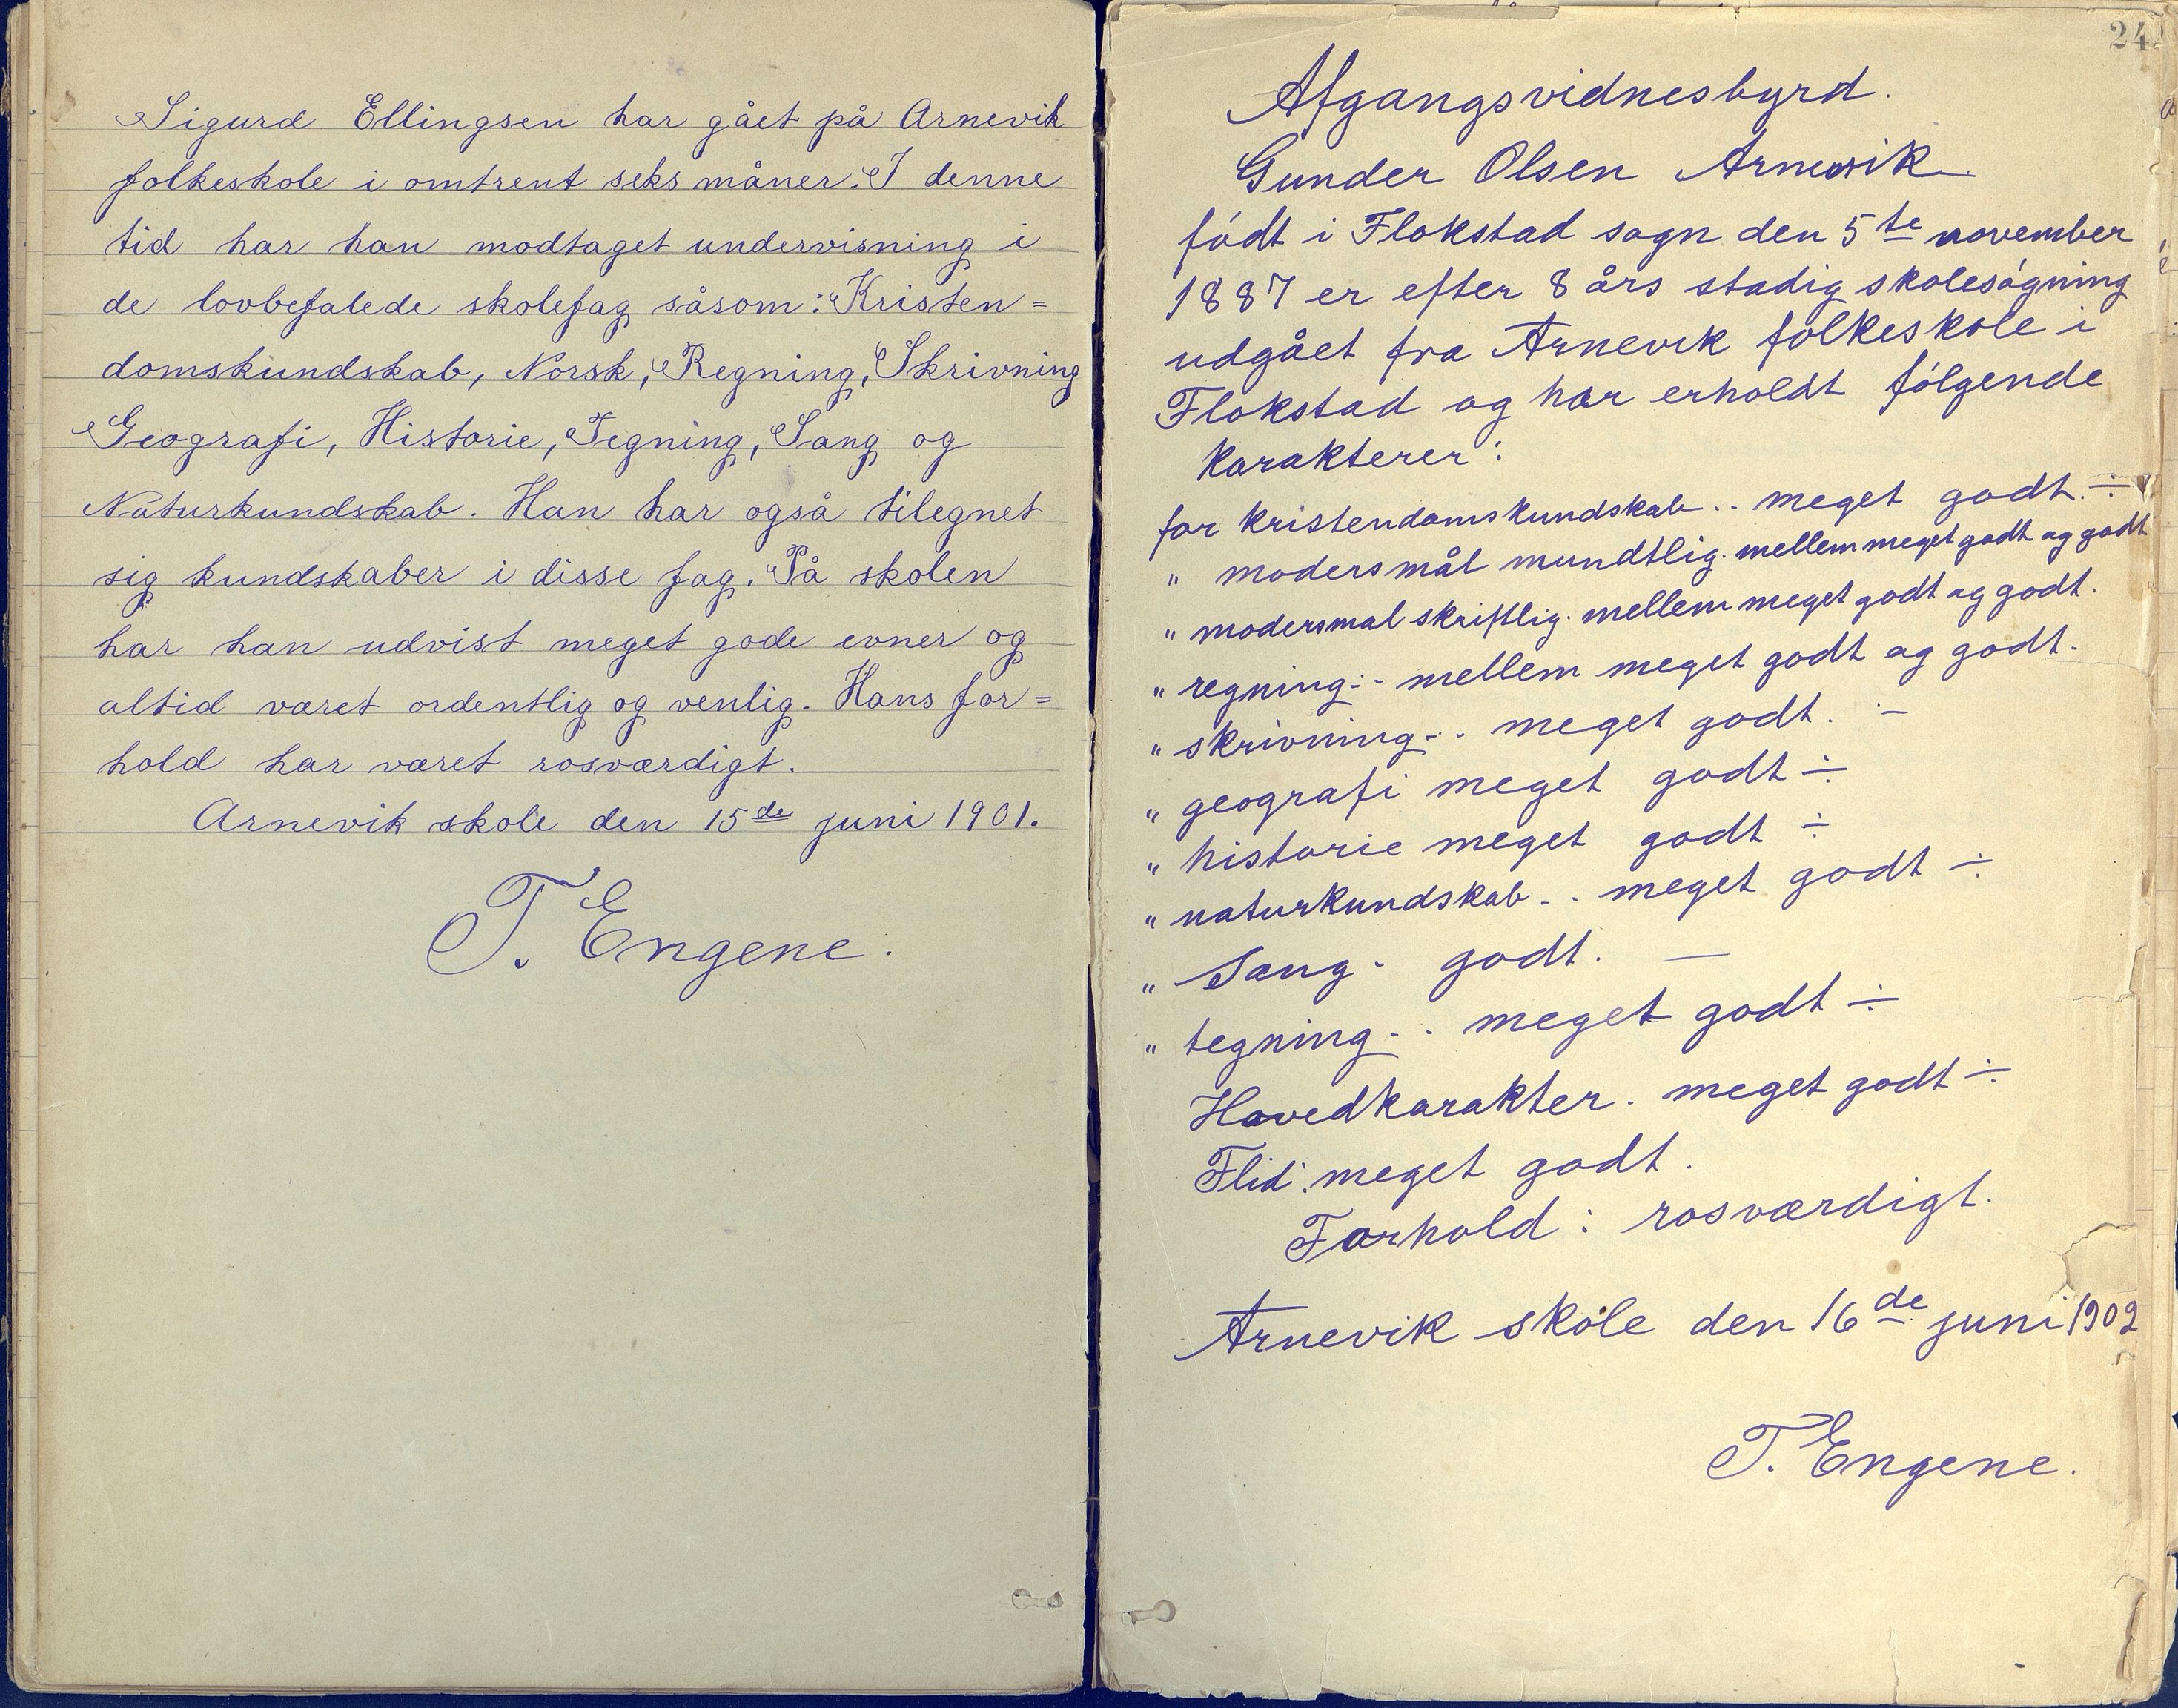 Sigurd Ellingsen har gået på Arnevik
folkeskole i omtrent seks måner. I denne
tid har han modtaget undervisning i
de lovbefalede skolefag såsom: Kristen=
domskundskab, Norsk, Regning, Skrivning
Geografi, Historie, Tegning, Sang og
Naturkundskab. Han har også tilegnet
sig kundskaber i disse fag. På skolen
har han udvist meget gode evner og
altid været ordentlig og venlig. Hans for=
hold har været rosværdigt.
Arnevik skole den 15de juni 1901.
T. Engene.
24
Afgangsvidnesbyrd.
Gunder Olsen Arnevik
født i Flokstad sogn den 5te november
1887 er efter 8 års stadig skolesøgning
udgået fra Arnevik folkeskole i
Flokstad og har erholdt følgende
karakterer:
for kristendomskundskab .. meget godt. ÷
" modersmål mundtlig. mellem meget godt og godt
" modersmal skriftlig. mellem meget godt og godt.
" regning .. mellem meget godt og godt.
" skrivning .. meget godt. ÷
" geografi meget godt ÷
" historie meget godt ÷
" naturkundskab .. meget godt ÷
" Sang . godt. —
" tegning .. meget godt ÷
Hovedkarakter . meget godt ÷
Flid : meget godt.
Forhold : rosværdigt.
Arnevik skole den 16de juni 1902
T. Engene.